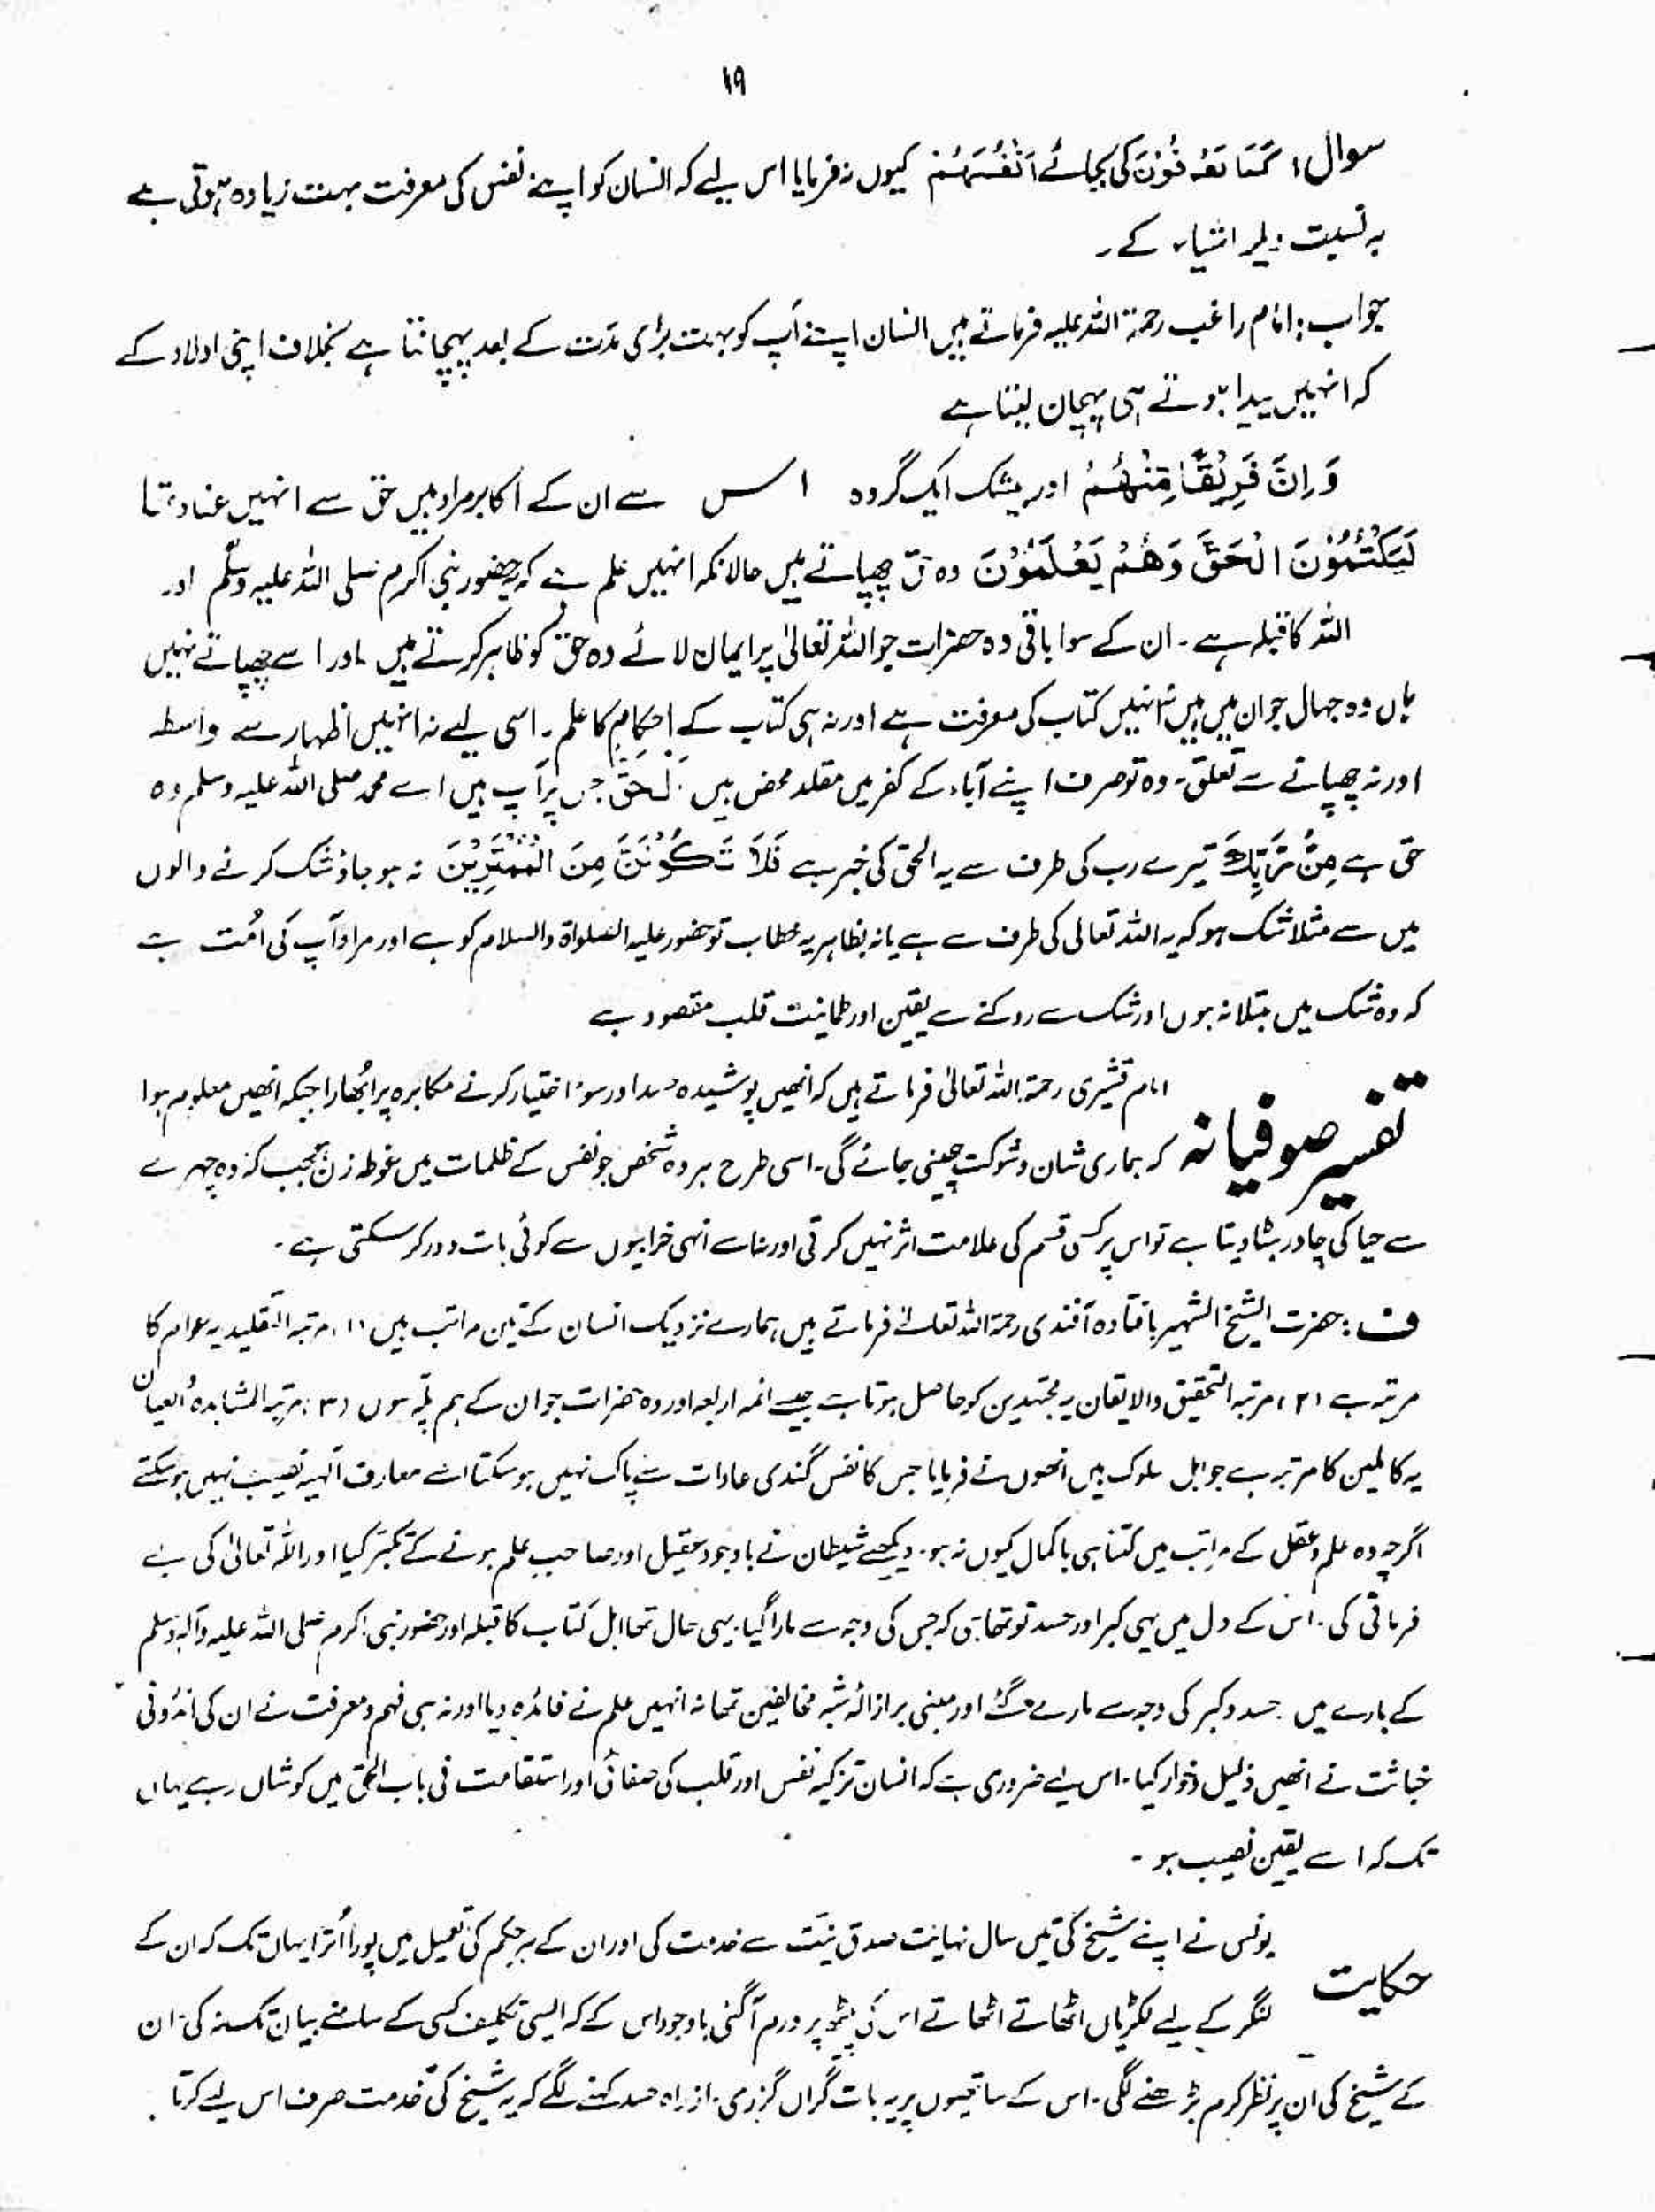 ۱۹
سوال: کَمَا یَعْرِفُوْنَ کی بجائے اَنْفُسَہُمْ کیوں نہ فرمایا اس لیے کہ انسان کو اپنے نفس کی معرفت بہت زیادہ ہوتی ہے
بہ نسبت دیگر اشیاء کے۔
جواب: امام راغب رحمۃ اللہ علیہ فرماتے ہیں انسان اپنے آپ کو بہت بڑی مدت کے بعد پہچانتا ہے بخلاف اپنی اولاد کے
کہ انہیں پیدا ہوتے ہی پہچان لیتا ہے
وَاِنَّ فَرِیْقًا مِّنْہُمْ اور بیشک ایک گروہ اس سے ان کے اکابر مراد ہیں حق سے انہیں عناد تھا
لَیَکْتُمُوْنَ الْحَقَّ وَھُمْ یَعْلَمُوْنَ وہ حق چھپاتے ہیں حالانکہ انہیں علم ہے کہ یہ حضور نبی اکرم صلی اللہ علیہ وسلم اور
اللہ کا قبلہ ہے۔ ان کے سوا باقی وہ حضرات جو اللہ تعالیٰ پر ایمان لائے وہ حق کو ظاہر کرتے ہیں۔ اور اسے چھپاتے نہیں
ہاں وہ جہال جو ان میں ہیں نہ انہیں کتاب کی معرفت ہے اور نہ ہی کتاب کے احکام کا علم۔ اسی لیے نہ انہیں اظہار سے واسطہ
اور نہ چھپانے سے تعلق۔ وہ تو صرف اپنے آباء کے کفر میں مقلد محض ہیں۔ لْحَقُّ جس پر آپ ہیں اے محمد صلی اللہ علیہ وسلم وہ
حق ہے مِنْ رَّبِّکَ تیرے رب کی طرف سے یہ الحق کی خبر ہے فَلَا تَکُوْنَنَّ مِنَ الْمُمْتَرِیْنَ نہ ہو جاؤ شک کرنے والوں
میں سے مثلا شک ہو کہ یہ اللہ تعالی کی طرف سے ہے یا نہ بظاہر یہ خطاب تو حضور علیہ الصلواۃ والسلام کو ہے اور مراد آپ کی اُمت ہے
کہ وہ شک میں مبتلا نہ ہوں اور شک سے روکنے سے یقین اور طمانیت قلب مقصود ہے
تفسیر صوفیانہ امام قشیری رحمۃ اللہ تعالیٰ فرماتے ہیں کہ انھیں پوشیدہ حسد اور سوء اختیار کرنے مکابرہ پر اُبھارا جبکہ انھیں معلوم ہوا
کہ ہماری شان و شوکت چھینی جائے گی۔ اسی طرح ہر وہ شخص جو نفس کے ظلمات میں غوطہ زن ہے جب کہ وہ چہرے
سے حیا کی چادر ہٹا دیتا ہے تو اس پر کسی قسم کی علامت اثر نہیں کرتی اور نہ اسے انہی خرابیوں سے کوئی بات دور کر سکتی ہے۔
ف: حضرت الشیخ الشہیر بافتادہ آفندی رحمۃ اللہ تعالےٰ فرماتے ہیں ہمارے نزدیک انسان کے تین مراتب ہیں (۱) مرتبہ التقلید یہ عوام کا
مرتبہ ہے (۲) مرتبہ التحقیق والایقان یہ مجتہدین کو حاصل ہوتا ہے جیسے ائمہ اربعہ اور وہ حضرات جو ان کے ہم پلّہ ہوں (۳) مرتبہ المشاہدہ والعیان
یہ کاملین کا مرتبہ ہے جو اہل سلوک ہیں انھوں نے فرمایا جس کا نفس گندی عادات سے پاک نہیں ہو سکتا اسے معارف الٰہیہ نصیب نہیں ہو سکتے
اگرچہ وہ علم و عقل کے مراتب میں کتنا ہی باکمال کیوں نہ ہو۔ دیکھیے شیطان نے باوجود عقیل اور صاحب علم ہونے کے تکبّر کیا اور اللہ تعالیٰ کی بے
فرمانی کی۔ اس کے دل میں یہی کبر اور حسد تو تھا ہی کہ جس کی وجہ سے مارا گیا۔ یہی حال تھا اہل کتاب کا قبلہ اور حضور نبی اکرم صلی اللہ علیہ وآلہ وسلم
کے بارے میں۔ حسد و کبر کی وجہ سے مارے گئے اور مبنی بر ازالۂ شبہ مخالفین تھا نہ انہیں علم نے فائدہ دیا اور نہ ہی فہم و معرفت نے ان کی اندرونی
خباثت نے انھیں ذلیل و خوار کیا۔ اس لیے ضروری ہے کہ انسان تزکیہ نفس اور قلب کی صفائی اور استقامت فی باب الحق میں کوشاں رہے یہاں
تک کہ اسے یقین نصیب ہو۔
حکایت یونس نے اپنے شیخ کی تیس سال نہایت صدق نیّت سے خدمت کی اور ان کے ہر حکم کی تعمیل میں پورا اُترا یہاں تک کہ ان کے
لنگر کے لیے لکڑیاں اٹھاتے اٹھاتے اس کی پیٹھ پر ورم آگئی باوجود اس کے کہ ایسی تکلیف کسی کے سامنے بیان تک نہ کی۔ ان
کے شیخ کی ان پر نظر کرم بڑھنے لگی۔ اس کے ساتھیوں پر یہ بات گراں گزری۔ از راہ حسد کہنے لگے کہ یہ شیخ کی خدمت صرف اس لیے کرتا